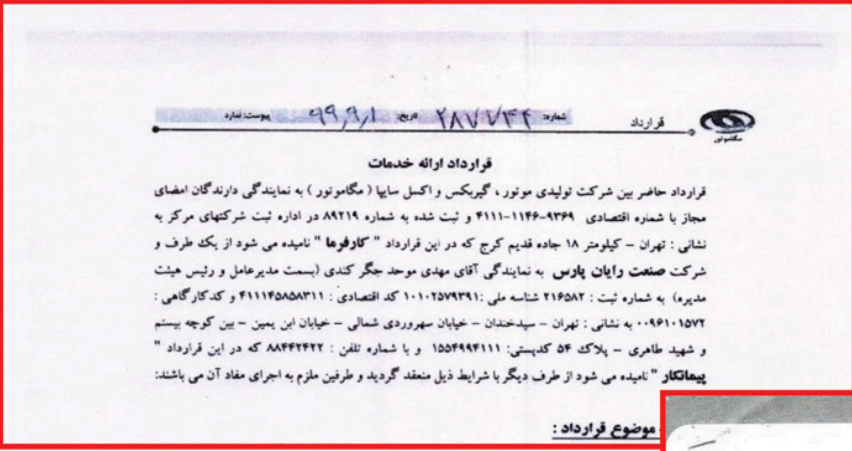 قرارداد
شماره: ۲۸۷۷۴۴ تاریخ: ۹۹,۹,۱ پیوست: ندارد
مگاموتور
قرارداد ارائه خدمات
قرارداد حاضر بین شرکت تولیدی موتور ، گیربکس و اکسل سایپا ( مگاموتور ) به نمایندگی دارندگان امضای
مجاز با شماره اقتصادی ۹۳۶۹-۱۱۴۶-۴۱۱۱ و ثبت شده به شماره ۸۹۲۱۹ در اداره ثبت شرکتهای مرکز به
نشانی : تهران – کیلومتر ۱۸ جاده قدیم کرج که در این قرارداد " کارفرما " نامیده می شود از یک طرف و
شرکت صنعت رایان پارس به نمایندگی آقای مهدی موحد جگر کندی (بسمت مدیرعامل و رئیس هیئت
مدیره) به شماره ثبت : ۲۱۶۵۸۲ شناسه ملی :۱۰۱۰۲۵۷۹۳۹۱ کد اقتصادی : ۴۱۱۱۴۵۸۵۸۳۱۱ و کدکارگاهی :
۰۰۹۶۱۰۱۵۷۲ به نشانی : تهران – سیدخندان – خیابان سهروردی شمالی – خیابان ابن یمین – بین کوچه بیستم
و شهید طاهری – پلاک ۵۴ کدپستی: ۱۵۵۴۹۹۴۱۱۱ و با شماره تلفن : ۸۸۴۴۲۴۲۲ که در این قرارداد "
پیمانکار " نامیده می شود از طرف دیگر با شرایط ذیل منعقد گردید و طرفین ملزم به اجرای مفاد آن می باشند:
موضوع قرارداد :